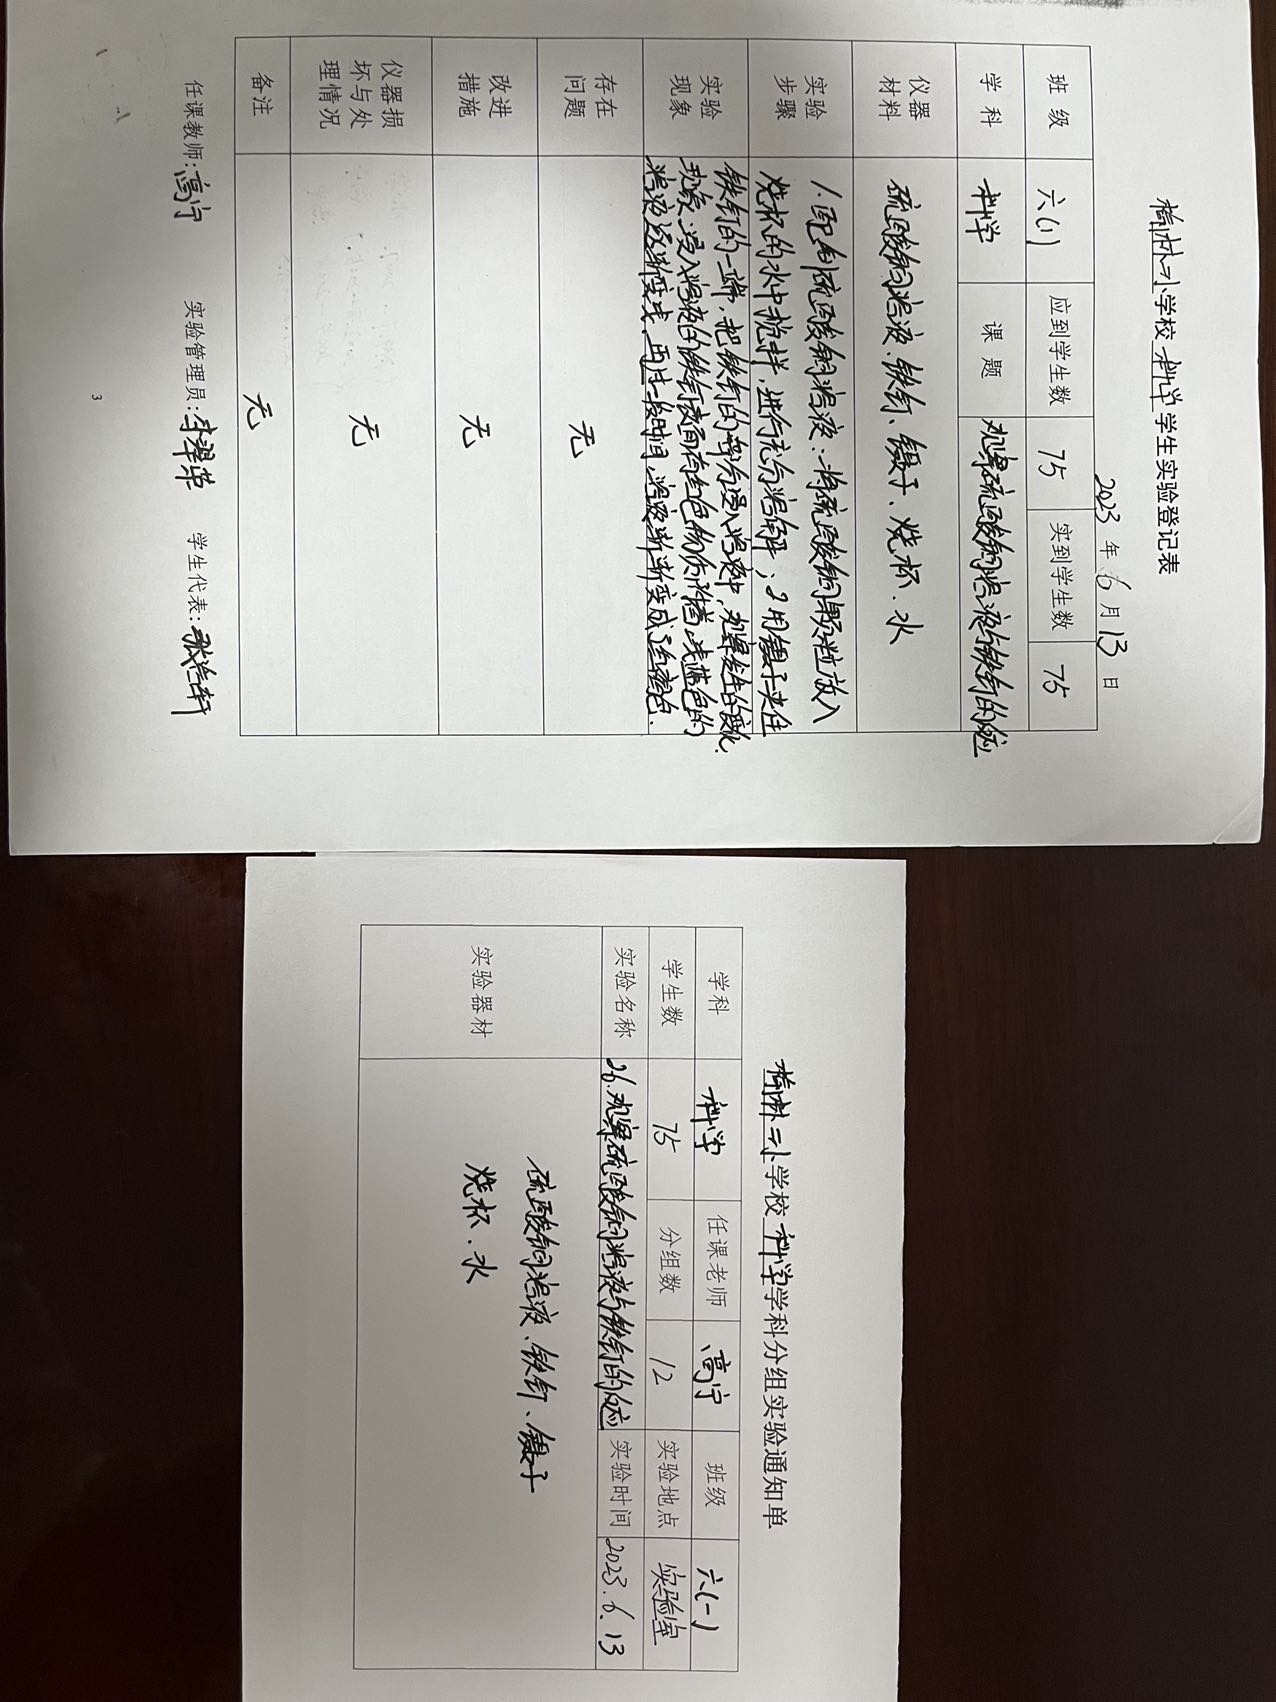 二小学校 科学 学生实验登记表
2023 年 6 月 13 日
班 级 六(1) 应到学生数 75 实到学生数 75
学 科 科学 课 题 观察硫酸铜溶液与铁钉的反应
仪器材料 硫酸铜溶液、铁钉、镊子、烧杯、水
实验步骤 1.配制硫酸铜溶液:将硫酸铜颗粒放入
烧杯的水中搅拌,进行充分溶解;2用镊子夹住
实验现象 铁钉的一端,把铁钉的部分浸入溶液中,观察发生的变化.
现象:浸入溶液的铁钉表面有红色物质附着,浅蓝色的
溶液逐渐变浅.再过一段时间,溶液渐渐变成了
存在问题 无
改进措施 无
仪器损坏与处理情况 无
备注 无
任课教师:高宁 实验管理员:李翠荣 学生代表:
3
二小学校 科学学科分组实验通知单
学科 科学 任课老师 高宁 班级 六(一)
学生数 75 分组数 12 实验地点 实验室
实验名称 26.观察硫酸铜溶液与铁钉的反应 实验时间 2023.6.13
实验器材 硫酸铜溶液、铁钉、镊子
烧杯.水